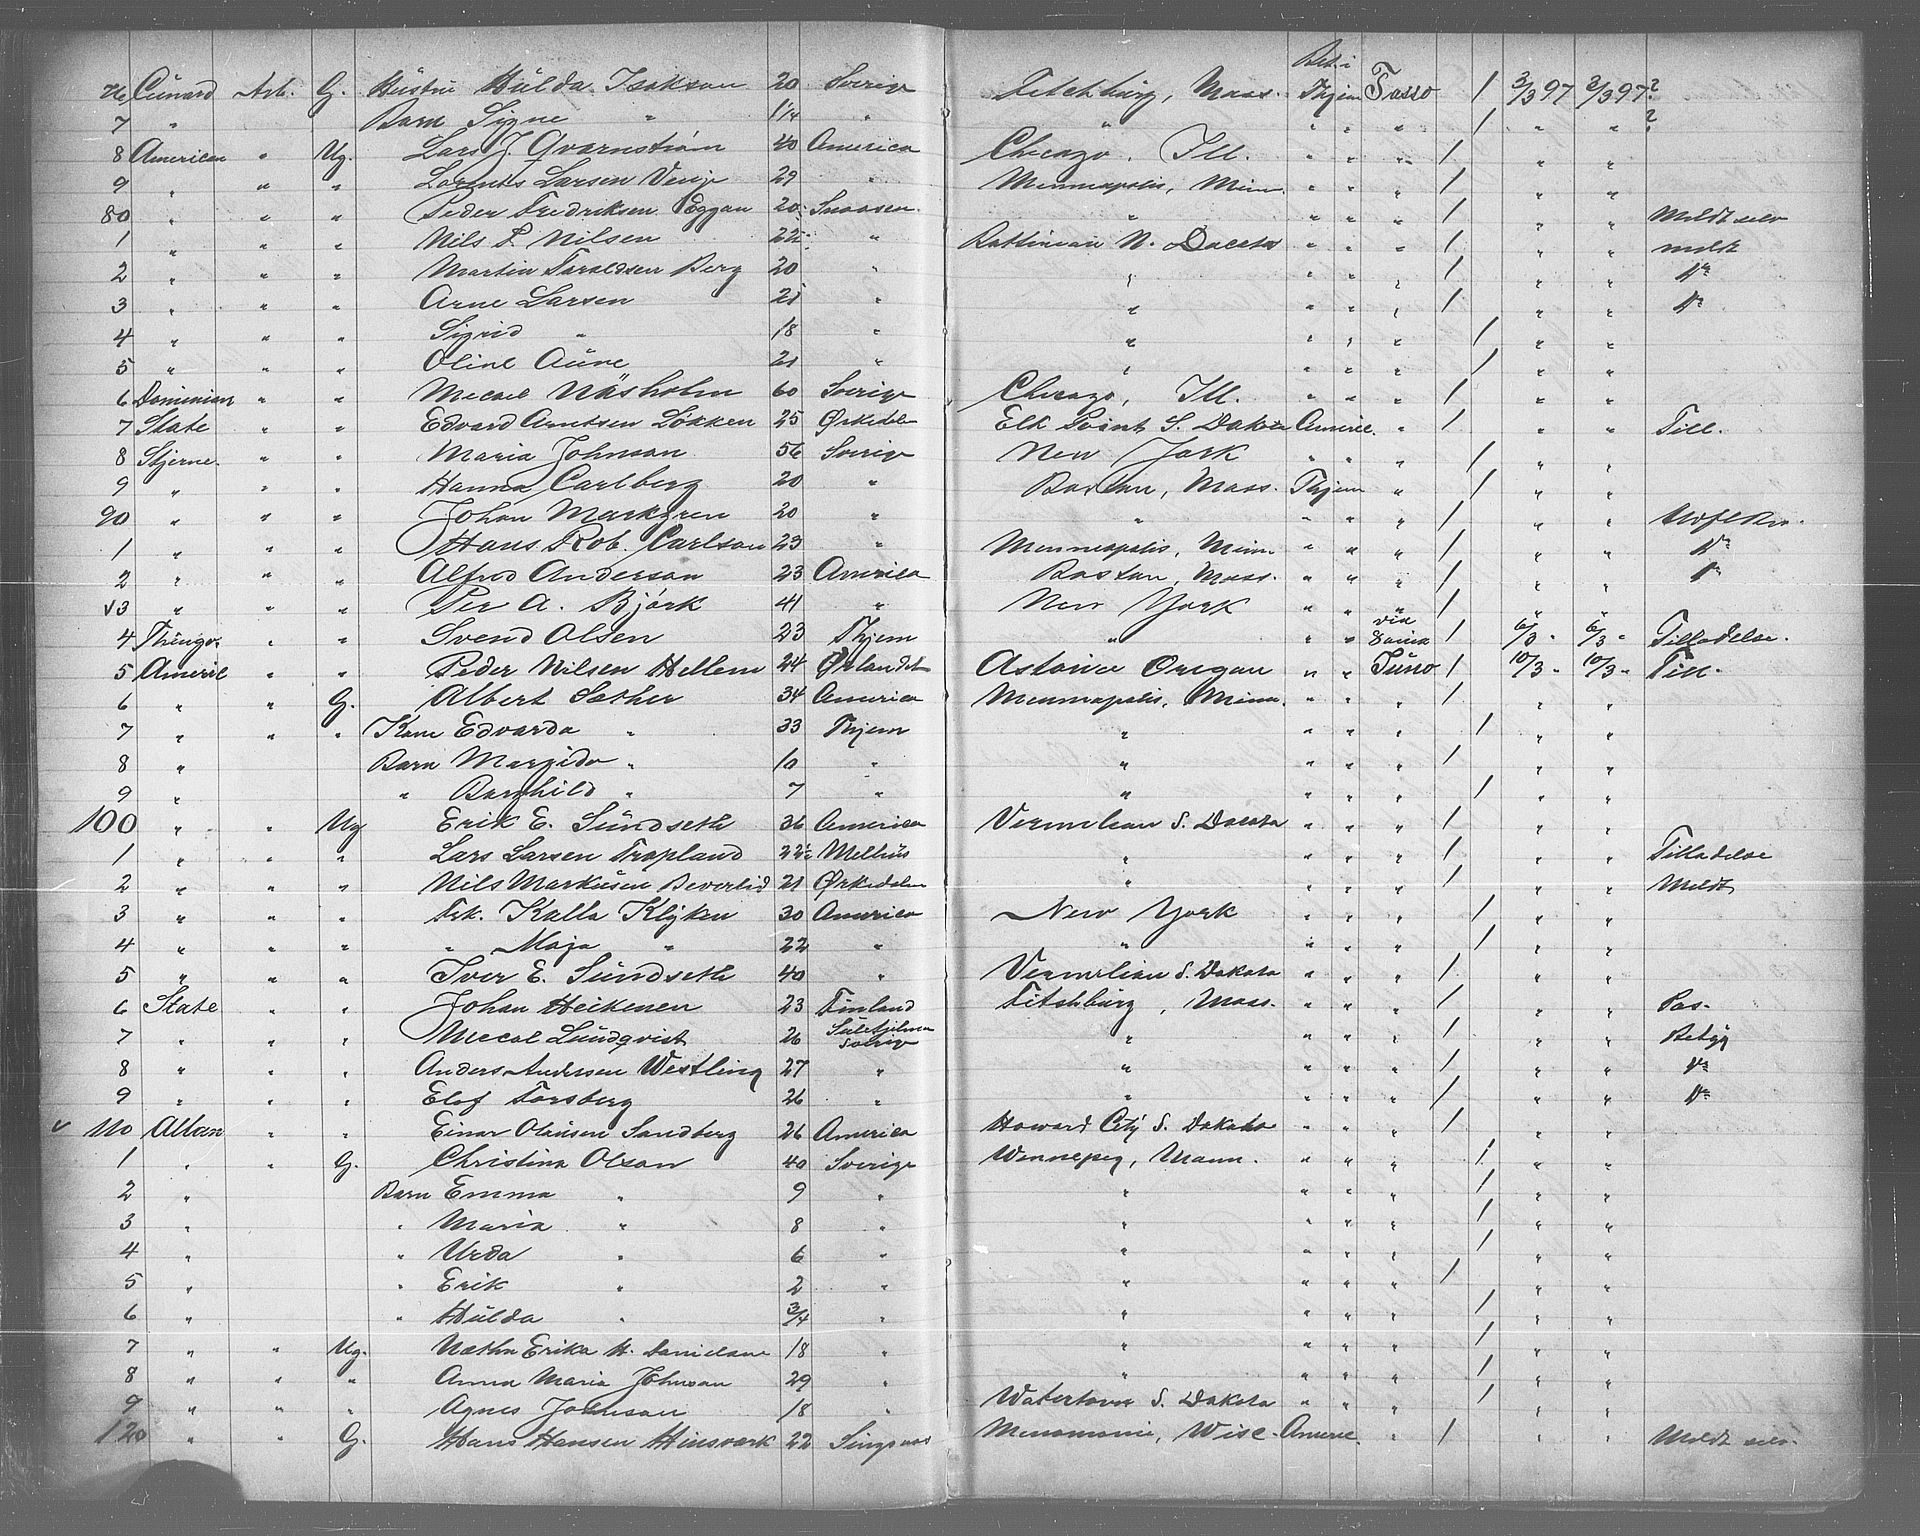 Bet. i
76 Cunard Arb. G. Hustru Hulda Isakson 20 Sverige Fitchburg, Mass. Thjem Tasso 1 2/3 97 2/3 97 ?
7 " Barn Signe " 1 1/4 " " " " " 1 " " ?
8 American " Ug. Lars J. Qvarnstrøm 40 America Chicago, Ill. " " " 1 " "
9 " " " Lorents Larsen 29 " Minneapolis, Minn. " " " 1 " "
80 " " " Peder Fredriksen 20 Snaasen " " " " 1 " " Meldt selv
1 " " " Nils P. Nilsen 22 " N. Dacota " " " 1 " " meldt
2 " " " Martin Taraldsen Berg 20 " " " " " 1 " " do
3 " " " Arne Larsen 21 " " " " " 1 " " do
4 " " " Sigrid " 18 " " " " " 1 " "
5 " " " Oline Aune 21 " " " " " 1 " "
6 Dominian " " Mecael Näsholm 60 Sverige Chicago, Ill. " " " 1 " "
7 State " " Edvard Arntsen Løkken 25 Ørkedalen Elk Point S. Dakota Americ. " 1 " " Till.
8 Stjerne " " Maria Johnson 56 Sverige New York " " " 1 " "
9 " " " Hanna Carlberg 20 " Boston, Mass. Thjem " 1 " "
90 " " " Johan Markgren 20 " " " " " 1 " "
1 " " " Hans Rob. Carlson 23 " Minneapolis, Minn " " " 1 " " do
2 " " " Alfred Anderson 23 America Boston, Mass. " " " 1 " " do
√3 " " " Per A. Bjørk 41 " New York " " " 1 " "
4 Thingv. " " Svend Olsen 23 Thjem " " " via 1 6/3 " 6/3 " Tilladelse.
5 Americ " " Peder Nilsen Hellem 24 Ørlandet Astoria Oregan " " Juno 1 10/3 " 10/3 " Till.
6 " " G. Albert Sæther 34 America Minneapolis, Minn. " " " 1 " "
7 " " " Kone Edvarda " 33 Thjem " " " " 1 " "
8 " Barn Margido " 10 " " " " " 1 " "
9 " " Barghild " 7 " " " " " 1 " "
100 " " Ug Erik E. Sundseth 36 America Vermilian S. Dacota " " " 1 " "
1 " " " Lars Larsen Trapland 22 1/2 Melhus " " " " 1 " " Tilladelse
2 " " " Nils Markusen Beverlid 21 Ørkedalen " " " " 1 " " Meldt
3 " " " Frk. Kalla Klyken 30 America New York " " " 1 " "
4 " " " " Maja " 22 " " " " " 1 " "
5 " " " Iver E. Sundseth 40 " Vermilian S. Dakota " " " 1 " "
6 State " " Johan Heikenen 23 Finland Fitshburg, Mass. " " " 1 " " Pas.
7 " " " Mecal Lundqvist 26 Sulitjelma Sverig " " " " 1 " "
8 " " " Anders Andersen Westling 27 " " " " " 1 " " do
9 " " " Elof Forsberg 26 " " " " " 1 " " do
√ 110 Allan " " Einar Olausen Sandberg 26 America Howard City S. Dakota " " " 1 " "
1 " " G. Christina Olson 40 Sverige Winnepeg, Mann. " " " 1 " "
2 " Barn Emma " 9 " " " " " 1 " "
3 " " Maria " 8 " " " " " 1 " "
4 " " Urda " 6 " " " " " 1 " "
5 " " Erik " 2 " " " " " 1 " "
6 " " Hulda " 3/4 " " " " " 1 " "
7 " " Ug. Erika H. Danielson 18 " " " " " 1 " "
8 " " " Anna Maria Johnson 29 " " " " " 1 " "
9 " " " Agnes Johnson 18 " Watertown S. Dakota " " " 1 " "
120 " " G. Hans Hansen Hinsverk 22 Singsaas Menomonie, Wisc. Americ. " 1 " " Meldt selv.